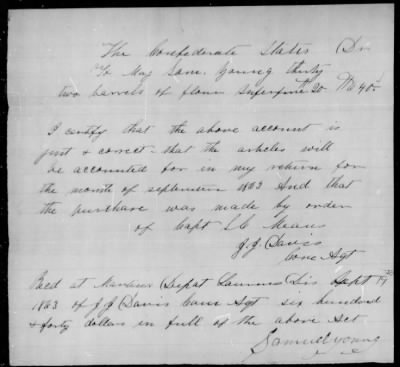 The Confederate States Dr
To Maj Sam. Young thirty
two barrels of flour superfine 20
I certify that the above account is
just & correct that the articles will
be accounted for in my return for
the month of september 1863 And that
the purchase was made by order
of Capt Means
J J Davis
Com Agt
Paid at Depot Sept 19
1863 of J J Davis Com Agt six hundred
& forty dollars in full of the above Act
Samuel Young